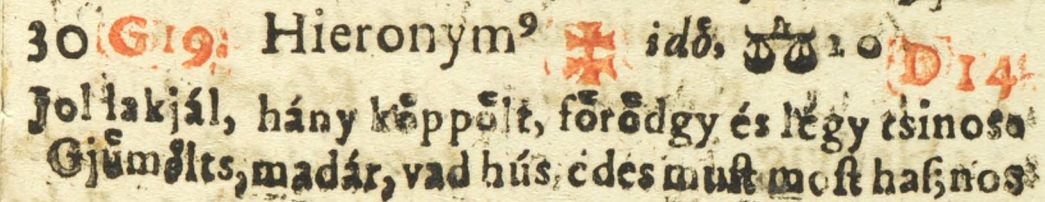 30 G 19. Hieronymꝰ idoͤ, ♎ 10 D 14
Jol lakjál, hány koͤppoͤlt, foͤroͤdgy és légy tsinosa
Gjuͤmoͤlts, madár, vad hús, édes muſt moſt haſznos